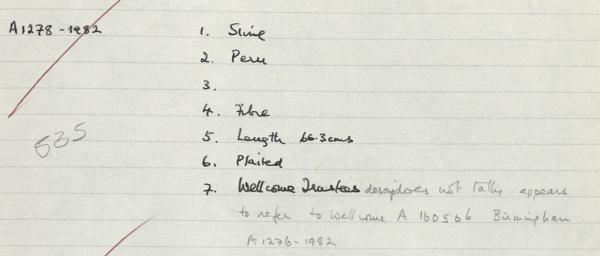 A1278-1982
1. Sling
2. Peru
3.
4. Fibre
5. Length 66.3cms
6. Plaited
7. Wellcome Trustees does not tally. appears
to refer to Wellcome A 160506 Birmingham
A1276-1982
535